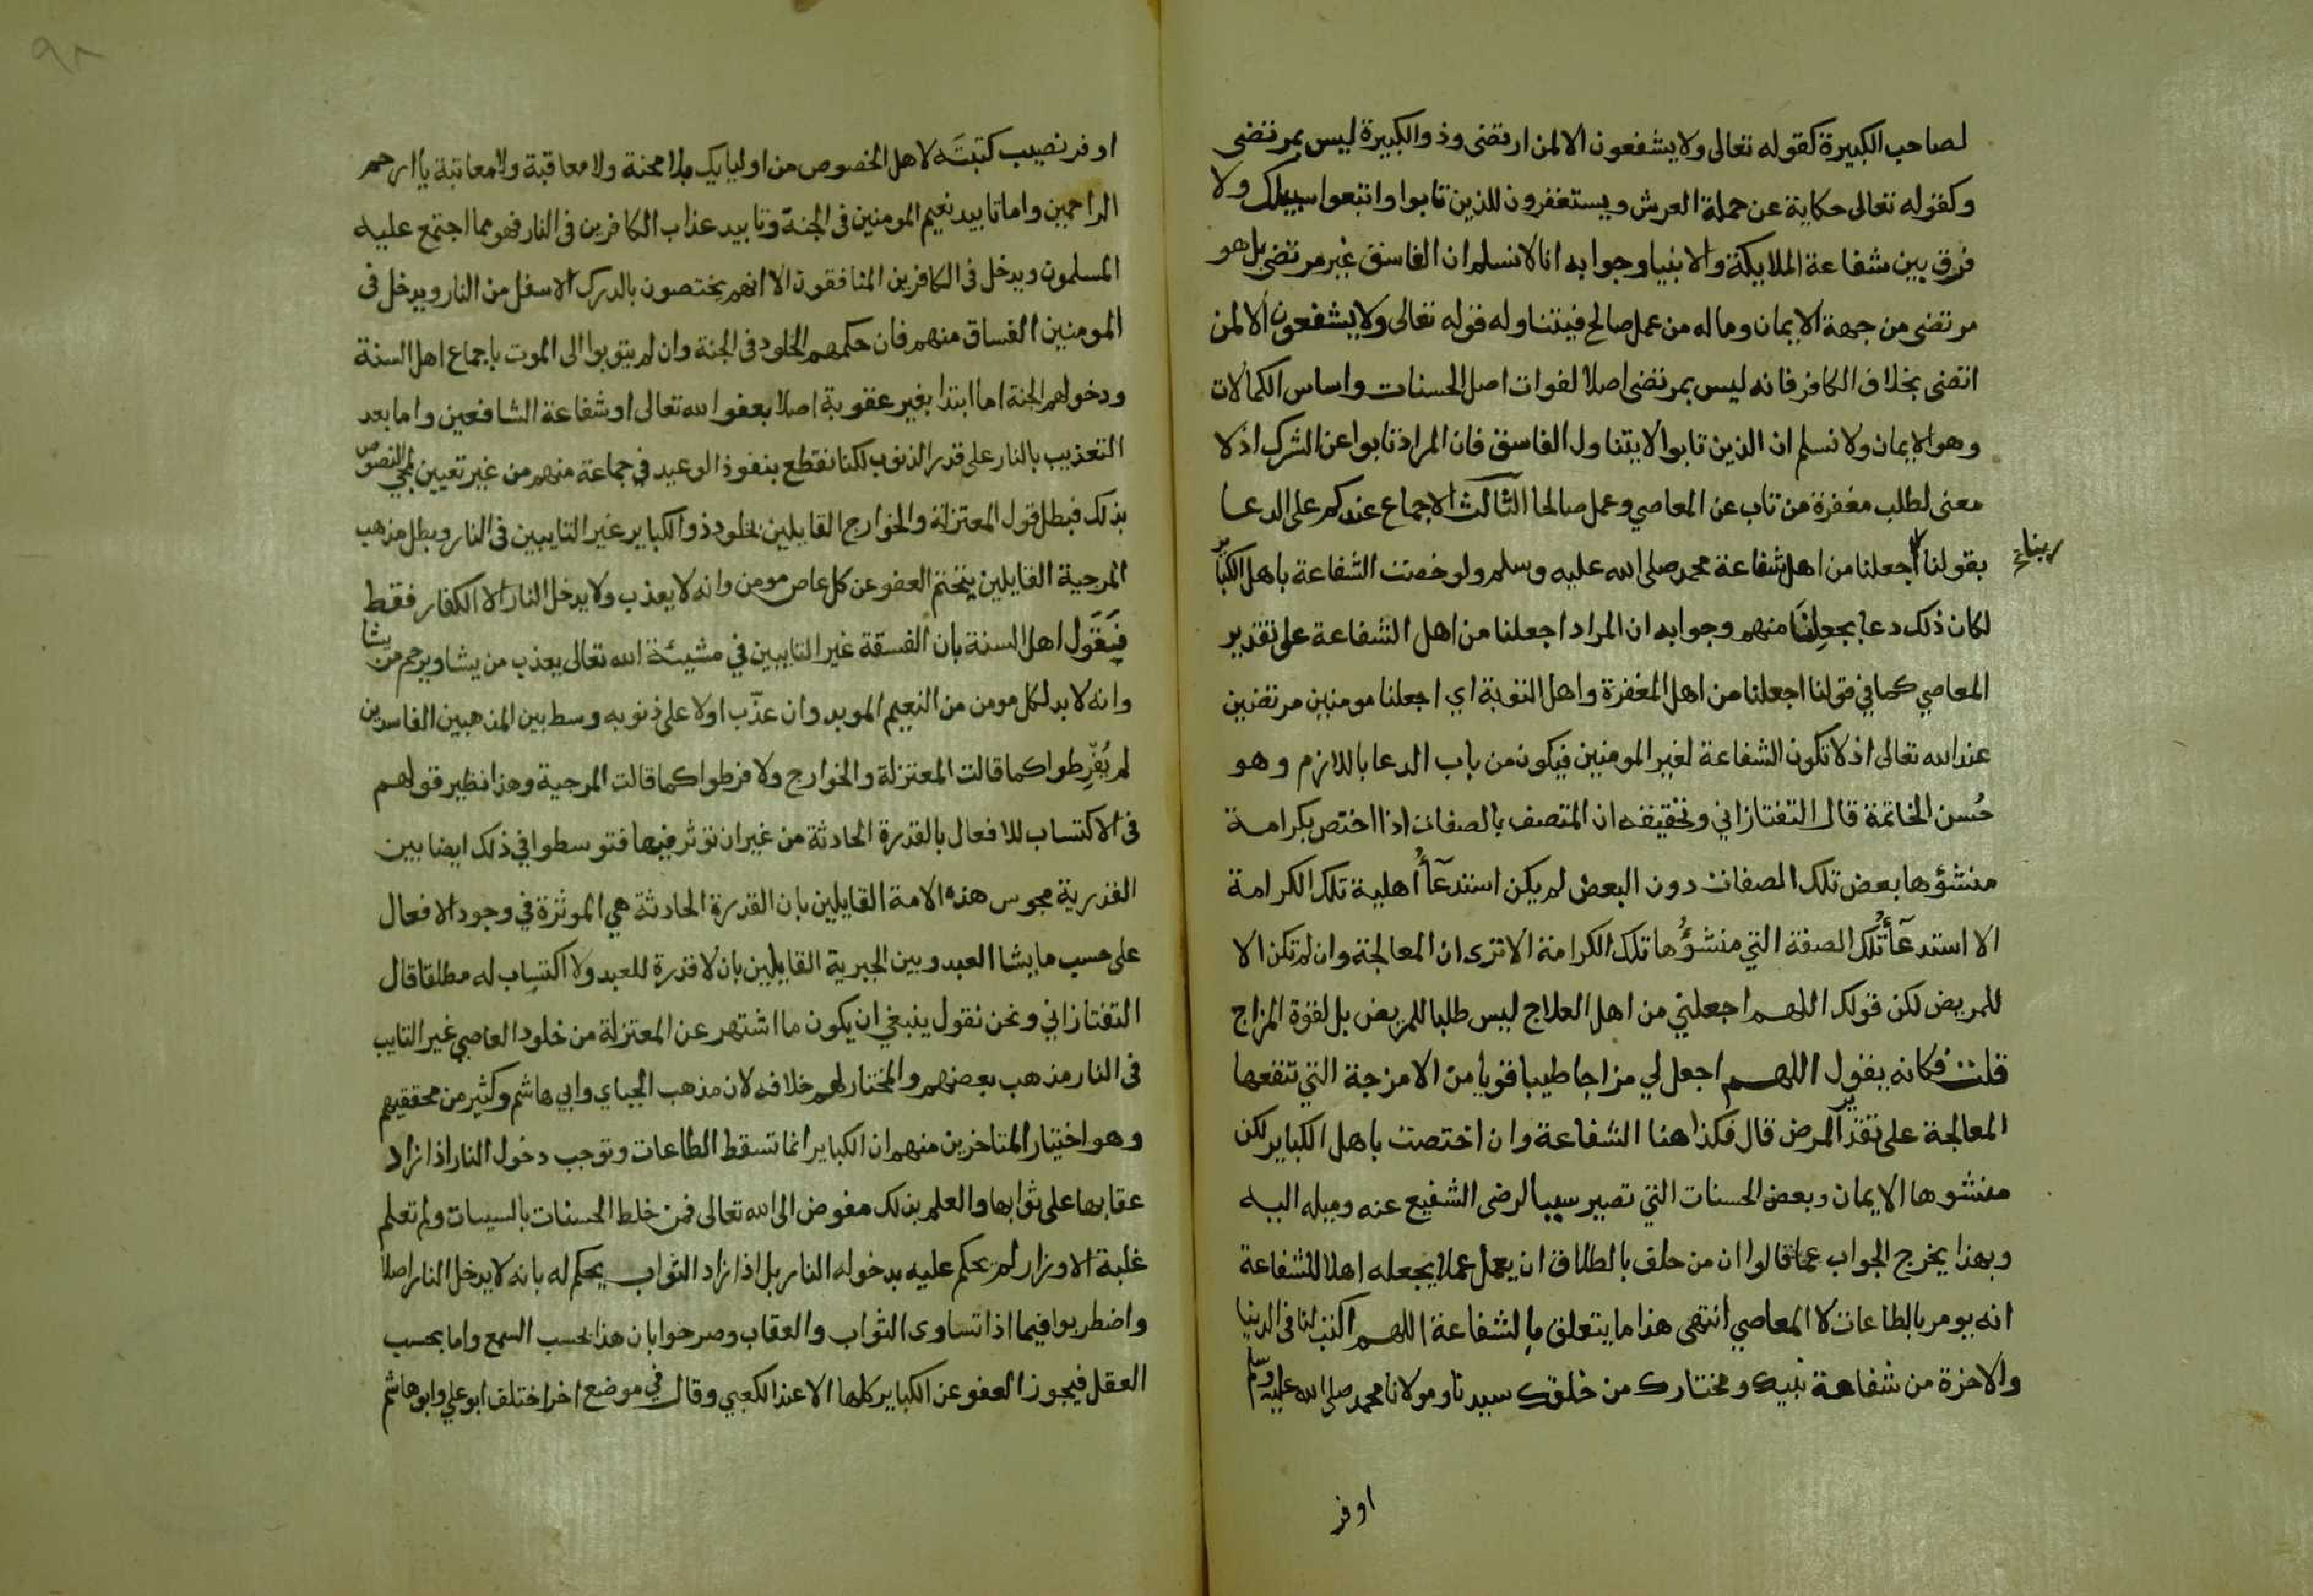 لصاحب الكبيرة كقوله تعالى ولا يشفعون الا لمن ارتضى وذو الكبيرة ليس بمرتضى
وكقوله تعالى حكاية عن حملة العرش ويستغفرون للذين تابوا واتبعوا سبيلك ولا
فرق بين شفاعة الملايكة والانبيا وجوابه انا لا نسلم ان الفاسق غير مرتضى بل هو
مرتضى من جهة الايمان وماله من عمل صالح فيتناوله قوله تعالى ولا يشفعون الا لمن
اتضى بخلاف الكافر فانه ليس بمرتضى اصلا لفوات اصل الحسنات واساس الكمالات
وهو الايمان ولا نسلم ان الذين تابوا لا يتناول الفاسق فان المراد تابوا عن الشرك اذ لا
معنى لطلب مغفرة من تاب عن المعاصي وعمل صالحا الثالث الاجماع عندكم على الدعا
بقولنا اجعلنا من اهل شفاعة محمد صلى الله عليه وسلم ولو خصت الشفاعة باهل الكباير
لكان ذلك دعا بجعلنا منهم وجوابه ان المراد اجعلنا من اهل الشفاعة على تقدير
المعاصي كما في قولنا اجعلنا من اهل المغفرة واهل التوبة اي اجعلنا مومنين مرتضين
عند الله تعالى اذ لا تكون الشفاعة لغير المومنين فيكون من باب الدعا باللازم وهو
حُسن الخاتمة قال التفتازاني وتحقيقه ان المتصف بالصفات اذا اختص بكرامة
منشؤها بعض تلك الصفات دون البعض لم يكن استدعآ أهلية تلك الكرامة
الا استدعآ تلك الصفة التي منشؤها تلك الكرامة الا ترى ان المعالجة وان لم تكن الا
للمريض لكن قولك اللهم اجعلني من اهل العلاج ليس طلبا للمريض بل لقوة المزاج
قلت فكانه يقول اللهم اجعل لي مزاجا طيبا قويا من الامزجة التي تنفعها
المعالجة على تقدير المرض قال فكذا هنا الشفاعة وان اختصت باهل الكباير لكن
منشوها الايمان وبعض الحسنات التي تصير سببا لرضى الشفيع عنه وميله اليه
وبهذا يخرج الجواب عما قالوا ان من حلف بالطلاق ان يعمل عملا يجعله اهلا للشفاعة
انه يومر بالطاعات لا المعاصي انتهى هذا ما يتعلق بالشفاعة اللهم اكتب لنا في الدنيا
والاخرة من شفاعة نبيك ومختارك من خلقك سيدنا ومولانا محمد صلى الله عليه وسلم
اوفر
اوفر نصيب كتبتَه لاهل الخصوص من اوليايك بلا محنة ولا معاقبة ولا معاتبة يا ارحم
الراحمين واما تابيد نعيم المومنين في الجنة وتابيد عذاب الكافرين في النار فهو مما اجتمع عليه
المسلمون ويدخل في الكافرين المنافقون الا انهم يختصون بالدرك الاسفل من النار ويدخل في
المومنين الفساق منهم فان حكمهم الخلود في الجنة وان لم يتوبوا الى الموت باجماع اهل السنة
ودخولهم الجنة اما ابتدا بغير عقوبة اصلا بعفو الله تعالى او شفاعة الشافعين واما بعد
التعذيب بالنار على قدر الذنوب لكنا نقطع بنفوذ الوعيد في جماعة منهم من غير تعيين لمجي النصوص
بذلك فبطل قول المعتزلة والخوارج القايلين بخلود ذو الكباير غير التايبين في النار وبطل مذهب
المرجية القايلين بتحتم العفو عن كل عاص مومن وانه لا يعذب ولا يدخل النار الا الكفار فقط
فيَقول اهل السنة بان الفسقة غير التايبين في مشيئة الله تعالى يعذب من يشا ويرحم من يشا
وانه لا بد لكل مومن من النعيم الموبد وان عذّب اولا على ذنوبه وسط بين المذهبين الفاسدين
لم يُفَرِّطوا كما قالت المعتزلة والخوارج ولا فرطوا كما قالت المرجية وهذا نظير قولهم
في الاكتساب للافعال بالقدرة الحادثة من غير ان توثر فيها فتوسطوا في ذلك ايضا بين
القدرية مجوس هذه الامة القايلين بان القدرة الحادثة هي الموثرة في وجود الافعال
على حسب ما يشا العبد وبين الجبرية القايلين بان لا قدرة للعبد ولا اكتساب له مطلقا قال
التفتازاني ونحن نقول ينبغي ان يكون ما اشتهر عن المعتزلة من خلود العاصي غير التايب
في النار مذهب بعضهم والمختار لهم خلافه لان مذهب الجباي وابي هاشم وكثير من محققيهم
وهو اختيار المتاخرين منهم ان الكباير انما تسقط الطاعات وتوجب دخول النار اذا زاد
عقابها على ثوابها والعلم بذلك مفوض الى الله تعالى فمن خلط الحسنات بالسيات ولم تعلم
غلبة الاوزار لم يحكم عليه بدخوله النار بل اذا زاد الثواب يحكم له بانه لا يدخل النار اصلا
واضطربوا فيما اذا تساوى الثواب والعقاب وصرحوا بان هذا بحسب السمع واما بحسب
العقل فيجوز العفو عن الكباير كلها الا عند الكعبي وقال في موضع اخر اختلف ابو علي وابو هاشم